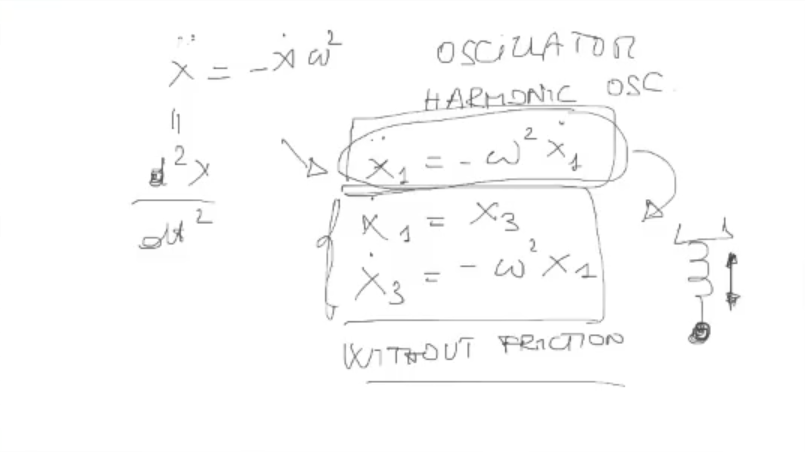 ẍ = -ẋ ω²
॥
d²x
dt²
OSCILLATOR
HARMONIC OSC.
ẍ₁ = - ω² ẋ₁
ẋ₁ = x₃
ẋ₃ = - ω² x₁
WITHOUT FRICTION